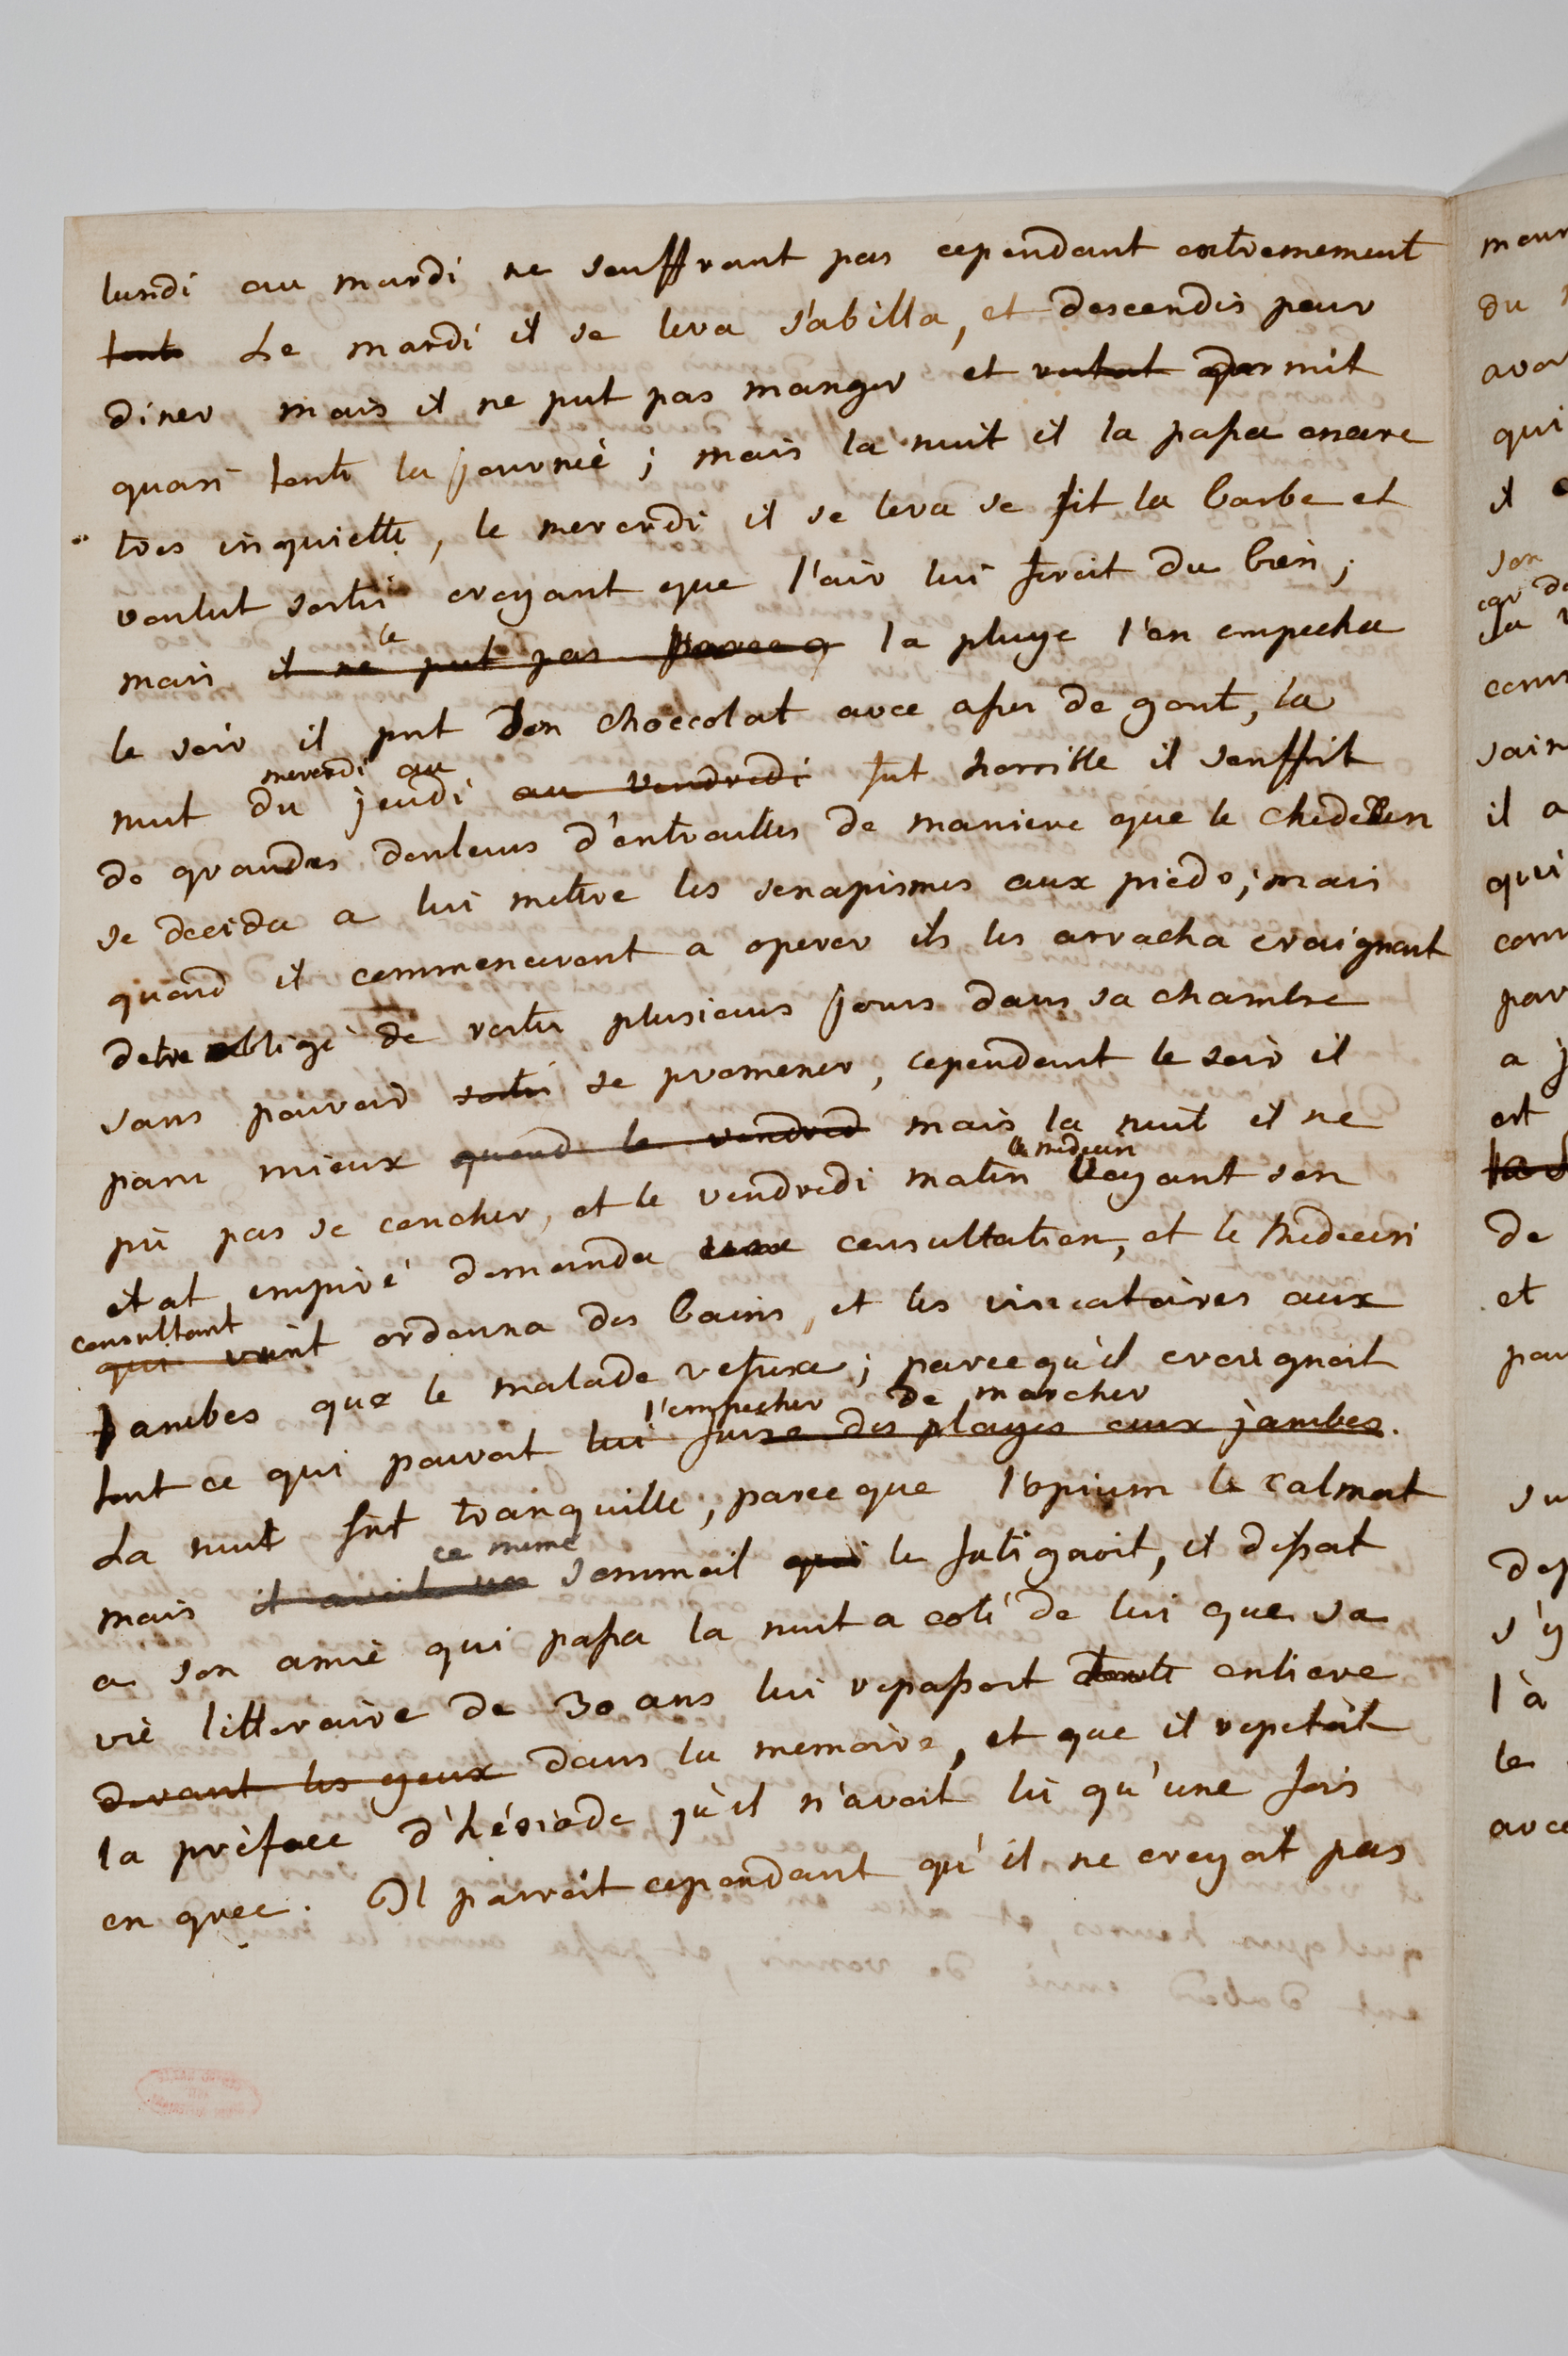 lundi au mardi ne souffrant pas cependant extremement
toute Le mardi il se leva s'abilla, et descendis pour
diner mais il ne put pas manger et dormit
quasi toute la journiè ; mais la nuit il la passa encore
tres inquiette, le mercredi il se leva se fit la barbe et
voulut sortir croyant que l'air lui feroit du bien ;
mais il ne le put pas parce q la pluye l'en empecha
le soir il prit son choccolat avec assez de gout, la
mercredi au
nuit du jeudi au vendredi fut horrible il souffrit
de grandes douleurs d'entrailles de maniere que le
se decida a lui mettre les senapismes aux pieds ; mais
quand il commencerent a operer ils les arracha craignant
detre obligé de rester plusieurs jours dans sa chambre
sans pouvoir sortir se promener, cependant le soir il
paru mieux quand le vendred mais la nuit il ne
le medecin
pu pas se coucher, et le vendredi matin voyant son
etat empiré demanda une consultation, et le medecin
consultant
qui vint ordonna des bains, et les viscatoires aux
jambes que le malade refusa ; parcequ'il craignoit
l'empecher de marcher
tout ce qui pouvoit lui faire des playes aux jambes.
La nuit fut tranquille, parce que l'opium le calmoit
ce même
mais il avoit un sommeil qui le fatigaoit, il disoit
a son amie qui passa la nuit a coté de lui que sa
vie litteraire de 30 ans lui repassoit toute entiere
devant les yeux dans la memoire, et que il repetoit
la prèface d'hésiode qu'il n'avoit lu qu'une fois
en grec. Il paroit cependant qu'il ne croyoit pas
du
qui
il
son
sa
il a
qui
par
a
est
de
et
s'y
là
le